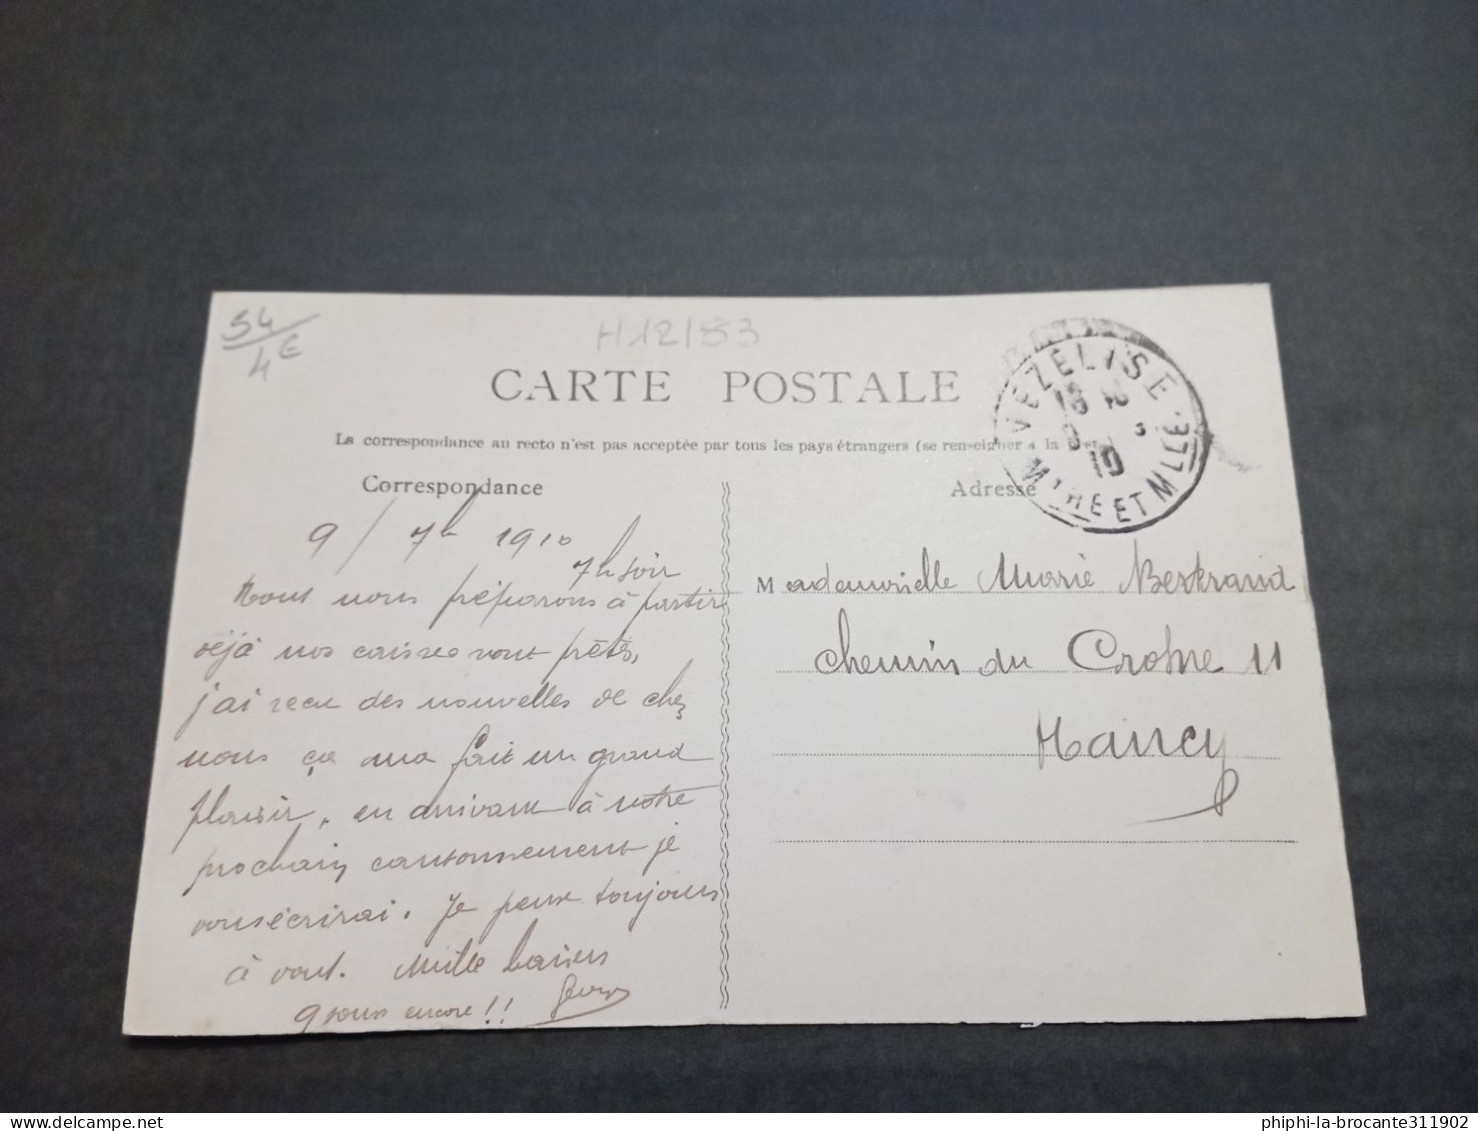 54
4€
H12/83
CARTE POSTALE
La correspondance au recto n'est pas acceptée par tous les pays étrangers (se renseigner a la
Correspondance
Adresse
VEZELISE
10
MTHE ET MLLE
9/ 7h 1910
7h soir
Nous nous préparons à partir
déjà nos caisses sont prêtes,
j'ai recu des nouvelles de chez
nous ça ma fait un grand
plaisir, en arrivant à notre
prochain cantonnement je
vous écrirai. Je pense toujours
à vous. Mille baisers
9 jours encore!!
Mademoiselle Marie Bertrand
chemin du Crosne 11
Nancy
phiphi-la-brocante311902